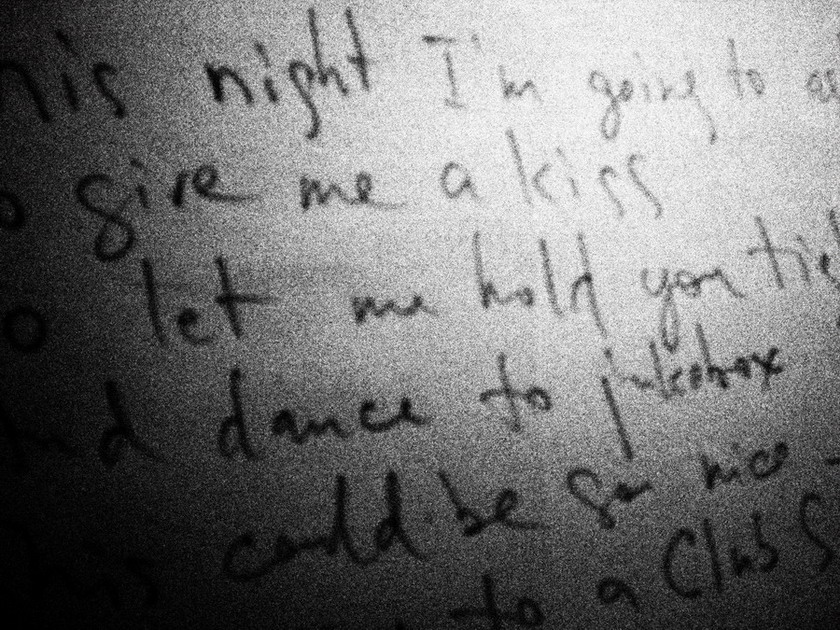 his night I'm going to as
o give me a kiss
o let me hold you tig
and dance to jukebox
This could be so nice -
to a Club S